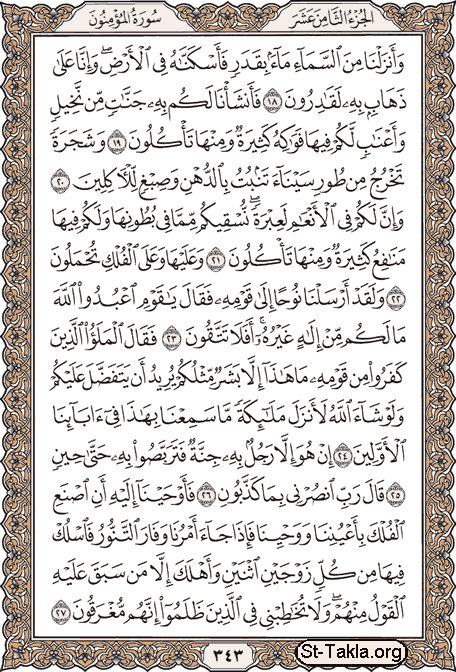 الجزء الثامن عشر
سورة المؤمنون
وَأَنزَلْنَا مِنَ السَّمَاءِ مَاءً بِقَدَرٍ فَأَسْكَنَّاهُ فِي الْأَرْضِ ۖ وَإِنَّا عَلَىٰ
ذَهَابٍ بِهِ لَقَادِرُونَ ١٨ فَأَنشَأْنَا لَكُم بِهِ جَنَّاتٍ مِّن نَّخِيلٍ
وَأَعْنَابٍ لَّكُمْ فِيهَا فَوَاكِهُ كَثِيرَةٌ وَمِنْهَا تَأْكُلُونَ ١٩ وَشَجَرَةً
تَخْرُجُ مِن طُورِ سَيْنَاءَ تَنبُتُ بِالدُّهْنِ وَصِبْغٍ لِّلْآكِلِينَ ٢٠
وَإِنَّ لَكُمْ فِي الْأَنْعَامِ لَعِبْرَةً ۖ نُّسْقِيكُم مِّمَّا فِي بُطُونِهَا وَلَكُمْ فِيهَا
مَنَافِعُ كَثِيرَةٌ وَمِنْهَا تَأْكُلُونَ ٢١ وَعَلَيْهَا وَعَلَى الْفُلْكِ تُحْمَلُونَ
٢٢ وَلَقَدْ أَرْسَلْنَا نُوحًا إِلَىٰ قَوْمِهِ فَقَالَ يَا قَوْمِ اعْبُدُوا اللَّهَ
مَا لَكُم مِّنْ إِلَٰهٍ غَيْرُهُ ۖ أَفَلَا تَتَّقُونَ ٢٣ فَقَالَ الْمَلَؤُا الَّذِينَ
كَفَرُوا مِن قَوْمِهِ مَا هَٰذَا إِلَّا بَشَرٌ مِّثْلُكُمْ يُرِيدُ أَن يَتَفَضَّلَ عَلَيْكُمْ
وَلَوْ شَاءَ اللَّهُ لَأَنزَلَ مَلَائِكَةً مَّا سَمِعْنَا بِهَٰذَا فِي آبَائِنَا
الْأَوَّلِينَ ٢٤ إِنْ هُوَ إِلَّا رَجُلٌ بِهِ جِنَّةٌ فَتَرَبَّصُوا بِهِ حَتَّىٰ حِينٍ
٢٥ قَالَ رَبِّ انصُرْنِي بِمَا كَذَّبُونِ ٢٦ فَأَوْحَيْنَا إِلَيْهِ أَنِ اصْنَعِ
الْفُلْكَ بِأَعْيُنِنَا وَوَحْيِنَا فَإِذَا جَاءَ أَمْرُنَا وَفَارَ التَّنُّورُ ۙ فَاسْلُكْ
فِيهَا مِن كُلٍّ زَوْجَيْنِ اثْنَيْنِ وَأَهْلَكَ إِلَّا مَن سَبَقَ عَلَيْهِ
الْقَوْلُ مِنْهُمْ ۖ وَلَا تُخَاطِبْنِي فِي الَّذِينَ ظَلَمُوا ۖ إِنَّهُم مُّغْرَقُونَ ٢٧
٣٤٣
St-Takla.org